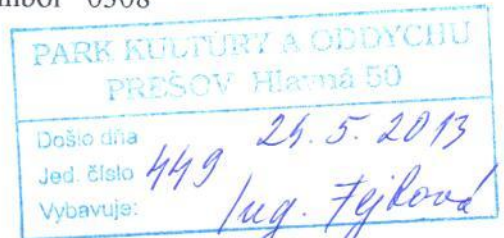 0308
PARK KULTÚRY A ODDYCHU
PREŠOV Hlavná 50
Došlo dňa 24. 5. 2013
Jed. číslo 449
Vybavuje: Ing. Fejková